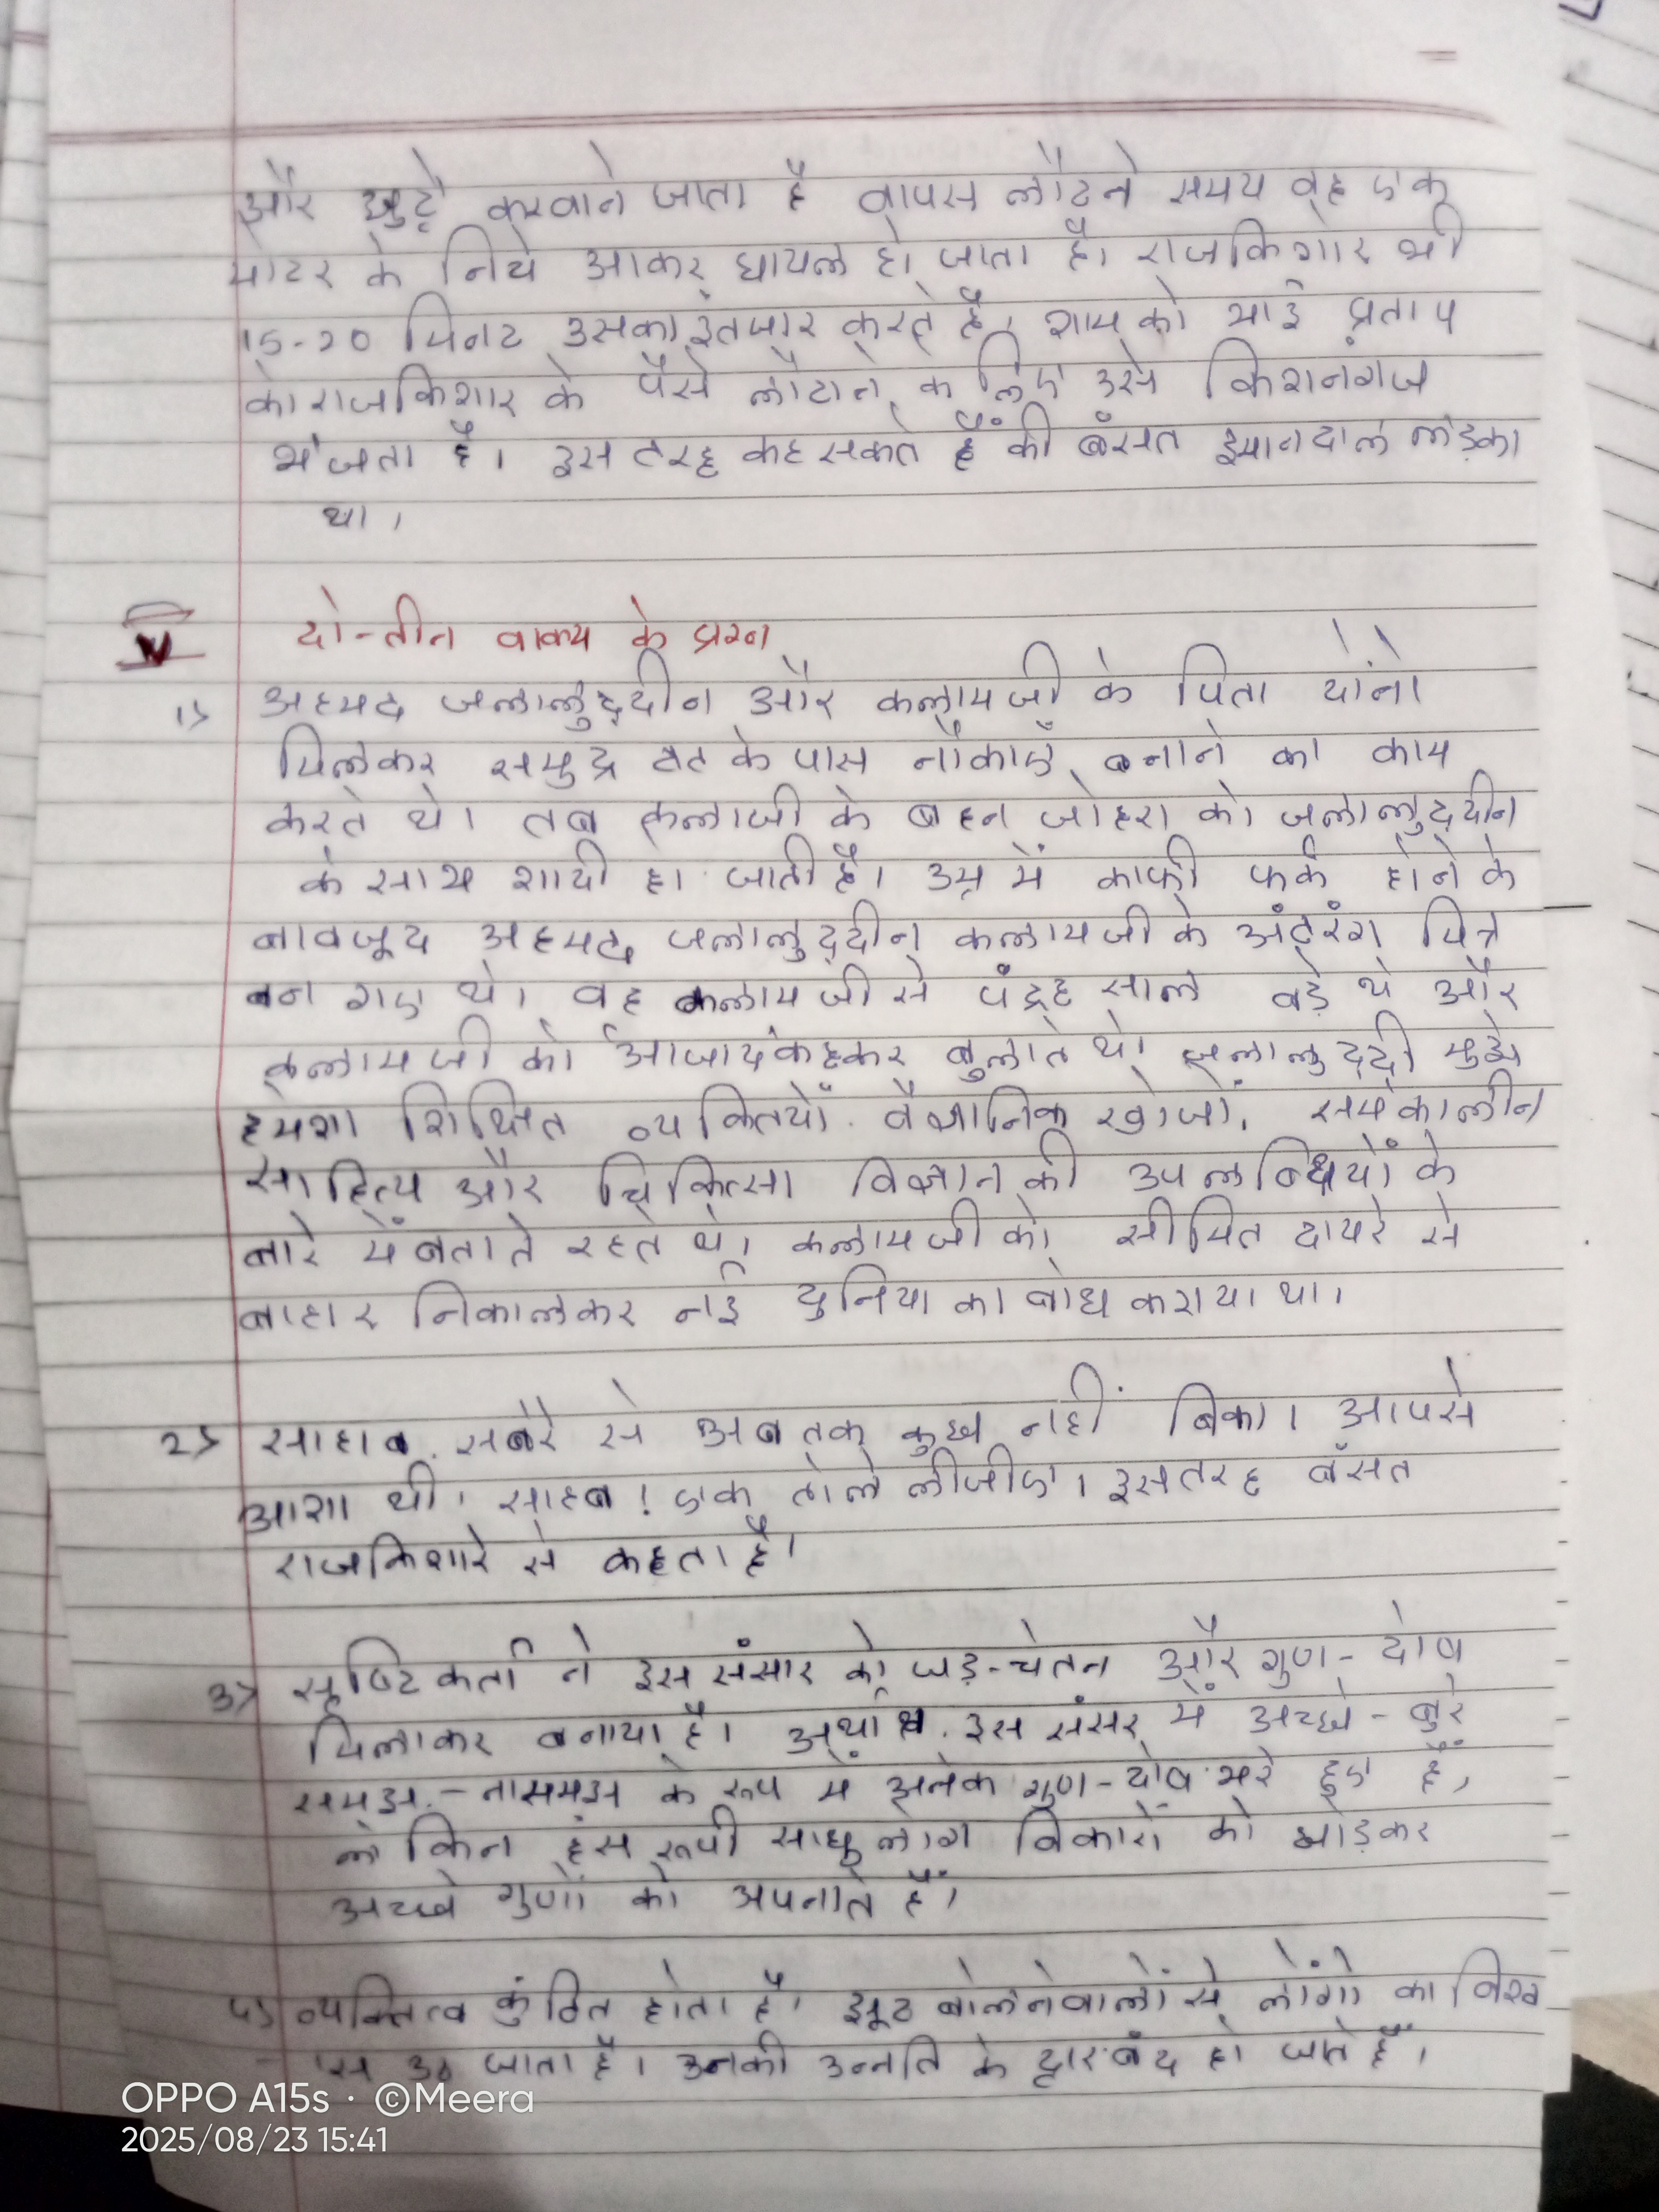 और छुट्टे करवाने जाता है वापस लौटने समय वह एक
मोटर के निचे आकर घायल हो जाता है। राजकिशोर भी
15-20 मिनट उसका इंतजार करते है, शाम को भाई प्रताप
को राजकिशोर के पैसे लौटाने के लिए उसे किशनगंज
भेजता है। इस तरह कह सकते हैं की बंसत इमानदाल लड़का
था।
IV दो-तीन वाक्य के प्रश्न
1) अहमद जलालुद्दीन और कलामजी के पिता दोंनो
मिलकर समुद्र तट के पास नौकाएँ बनाने का काम
करते थे। तब कलाजी के बहन जोहरा को जलालुद्दीन
के साथ शादी हो जाती है। उम्र में काफी फर्क होने के
बावजूद अहमद जलालुद्दीन कलामजी के अंतरंग मित्र
बन गए थे। वह कलामजी से पंद्रह साल बड़े थे और
कलामजी को आजाद कहकर बुलाते थे। जलालुद्दी मुझे
हमेशा शिक्षित व्यक्तियों. वैज्ञानिक खोजों, समकालीन
साहित्य और चिकित्सा विज्ञान की उपलब्धियों के
बारे में बताते रहते थे। कलामजी को सीमित दायरे से
बाहार निकालकर नई दुनिया का बोध कराया था।
2) साहाब. सबेरे से अब तक कुछ नहीं बिका। आपसे
आशा थी। साहब! एक तो ले लीजीए। इस तरह बंसत
राजकिशोर से कहता है।
3) सृष्टिकर्ता ने इस संसार को जड़-चेतन और गुण-दोष
मिलाकर बनाया है। अर्थात. इस संसर में अच्छे-बुरे
समझ.-नासमझ के रूप में अनेक गुण-दोष भरे हुए हैं,
लेकिन हंस रूपी साधु लोग विकारों को छोड़कर
अच्छे गुणों को अपनाते हैं।
4) व्यक्तित्व कुंठित होता है। झूठ बोलनेवालों से लोंगो का विश्व
ास उठ जाता है। उनकी उन्नति के द्वार बंद हो जाते हैं।
OPPO A15s · ©Meera
2025/08/23 15:41